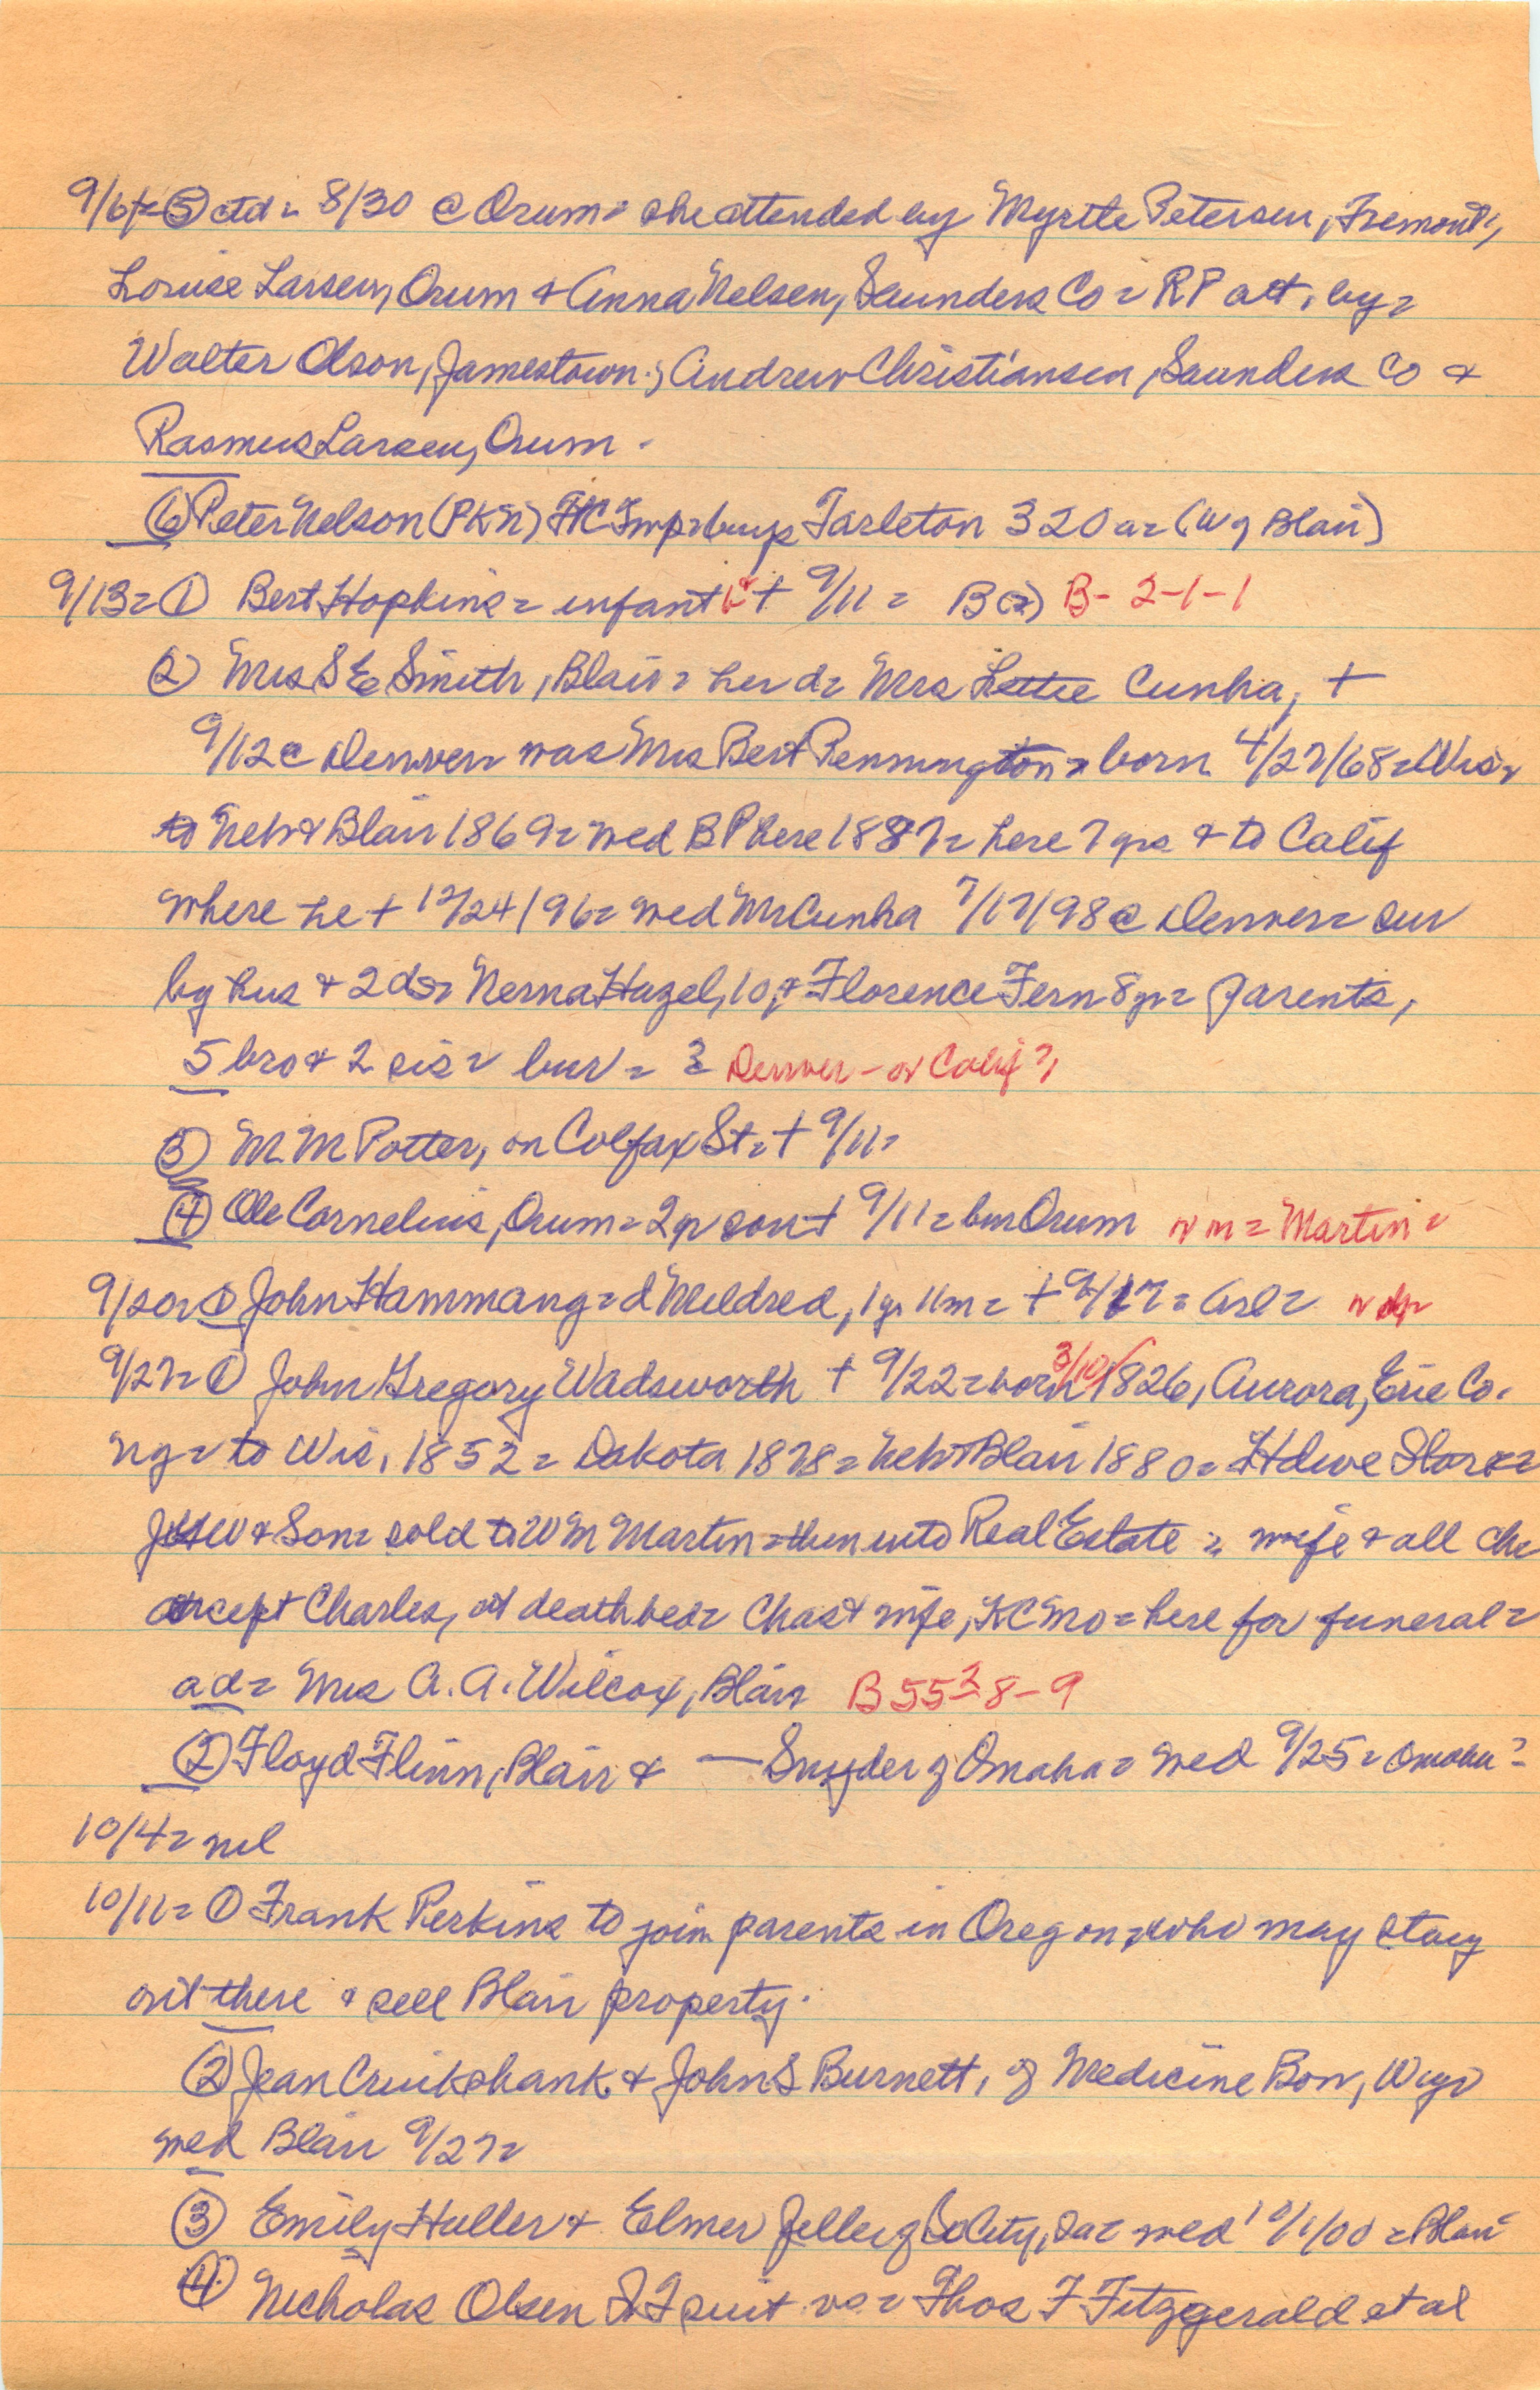 9/6/= ⑤ ctd = 8/30 @ Orum = she attended by Myrtle Petersen, Fremont;
Louise Larsen, Orum & Anna Nelsen, Saunders Co = RP att. by =
Walter Olson, Jamestown; Andrew Christiansen, Saunders Co &
Rasmus Larsen, Orum.
⑥ Peter Nelson (PKN) FC Imp = buys Tarleton 320 a = (W of Blair)
9/13 = ① Bert Hopkins = infant + 9/11 = B (2) B- 2-1-1
② Mrs S E Smith, Blair = her d = Mrs Lettie Cunha, +
9/12 @ Denver = was Mrs Bert Pennington = born 4/27/68 = Wis =
to Neb & Blair 1869 = wed B P here 1887 = here 7 yrs & to Calif
where he + 12/24/96 = wed Mr Cunha 7/17/98 @ Denver = sur
by hus & 2 ds = Nerna Hazel, 10, & Florence Fern 8 yr = parents,
5 bro & 2 sis = bur = ? Denver - or Calif ?
③ M M Potter, on Colfax St = + 9/11 =
④ Ole Cornelius, Orum = 2 yr son + 9/11 = bur Orum nm = Martin =
9/20 = ① John Hammang = d Mildred, 1 yr 11 m = + 9/17 = Arl =
9/27 = ① John Gregory Wadsworth + 9/22 = born 3/10/1826, Aurora, Erie Co.
NY = to Wis, 1852 = Dakota 1878 = Neb & Blair 1880 = Hdwe Store =
JGW & Son = sold to W M Martin = then into Real Estate = wife & all chi
except Charles, at deathbed = Chas & wife, KC Mo = here for funeral =
a d = Mrs A. A. Wilcox, Blair B 55 2-8-9
② Floyd Flinn, Blair & — Snyder of Omaha = wed 9/25 = Omaha ? =
10/4 = nil
10/11 = ① Frank Perkins to join parents in Oregon, who may stay
out there & sell Blair property.
② Jean Cruikshank & John S Burnett, of Medicine Bow, Wyo
wed Blair 9/27 =
③ Emily Haller & Elmer Jelley of City, Ia = wed 10/1/00 = Blair
④ Nicholas Olsen suit vs = Thos F Fitzgerald et al